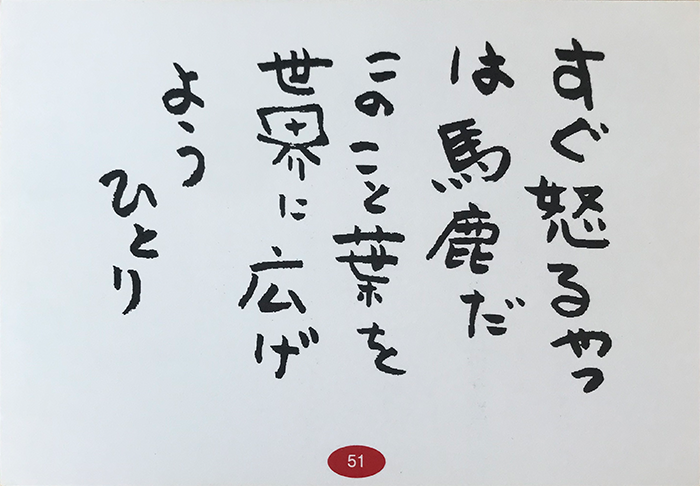 すぐ怒るやつ
は馬鹿だ
このこと葉を
世界に広げ
よう
ひとり
51